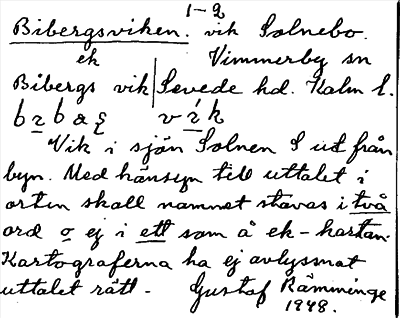 1-2
Bibergsviken. vik Solnebo.
ek Vimmerby sn
Bibergs vik Sevede hd. Kalm l.
Vik i sjön Solnen S ut från
byn. Med hänsyn till uttalet i
orten skall namnet stavas i två
ord o ej i ett som å ek-kartan.
Kartograferna ha ej avlyssnat
uttalet rätt - Gustaf Rämminge
1948.